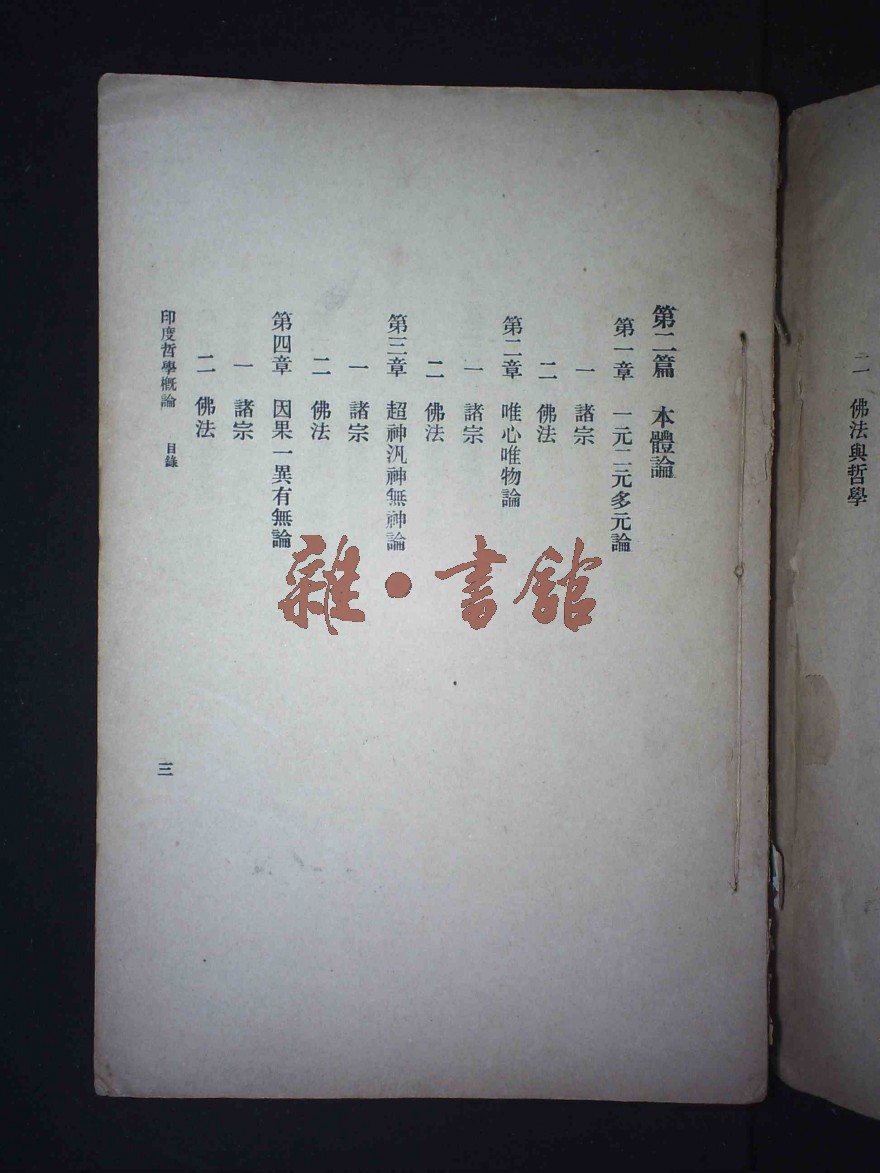 二　佛法與哲學
第二篇　本體論
第一章　一元二元多元論
一　諸宗
二　佛法
第二章　唯心唯物論
一　諸宗
二　佛法
第三章　超神汎神無神論
一　諸宗
二　佛法
第四章　因果一異有無論
一　諸宗
二　佛法
印度哲學概論　目錄
三
雜·書館